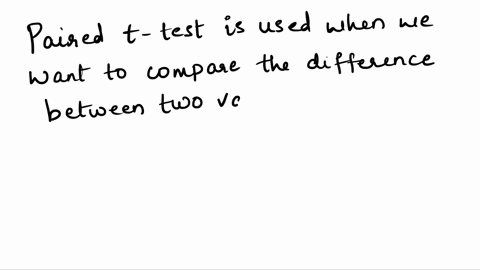 Paired t-test is used when we
want to compare the difference
between two va